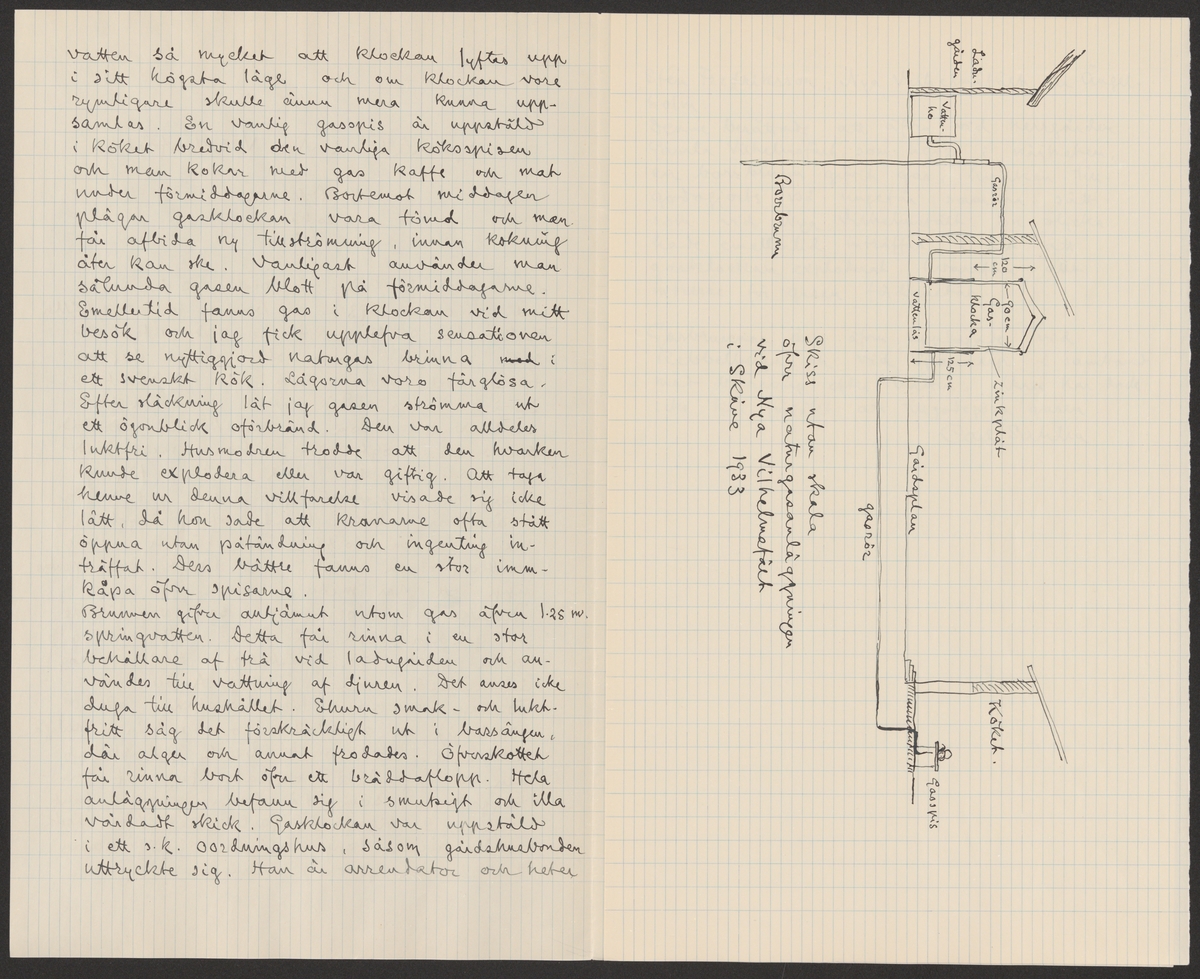 vatten så mycket att klockan lyftes upp
i sitt högsta läge och om klockan vore
rymligare skulle ännu mera kunna upp-
samlas. En vanlig gasspis är uppstäld
i köket bredvid den vanliga köksspisen
och man kokar med gas kaffe och mat
under förmiddagarne. Bortemot middagen
plägar gasklockan vara tömd och man
får afbida ny tillströmning, innan kokning
åter kan ske. Vanligast använder man
sålunda gasen blott på förmiddagarne.
Emellertid fanns gas i klockan vid mitt
besök och jag fick upplefva sensationen
att se nyttiggjord naturgas brinna med i
ett svenskt kök. Lågorna voro färglösa.
Efter släckning lät jag gasen strömma ut
ett ögonblick oförbränd. Den var alldeles
luktfri. Husmodren trodde att den hvarken
kunde explodera eller var giftig. Att taga
henne ur denna villfarelse visade sig icke
lätt, då hon sade att kranarne ofta stått
öppna utan påtändning och ingenting in-
träffat. Dess bättre fanns en stor imm-
kåpa öfvr spisarne.
Brunnen gifver antjämnt utom gas äfven 1.25 m.
springvatten. Detta får rinna i en stor
behållare af trä vid ladugården och an-
vändes till vattning af djuren. Det anses icke
duga till hushållet. Ehuru smak- och lukt-
fritt såg det förskräckligt ut i bassängen,
där alger och annat frodades. Öfverskottet
får rinna bort öfvr ett bräddaflopp. Hela
anläggningen befann sig i smutsigt och illa
vårdadt skick. Gasklockan var uppstäld
i ett s.k. oordningshus, såsom gårdshusbonden
uttryckte sig. Han är arrendator och heter
Ladu-
gården
Vatten-
ho
Borrbrunn
gasrör
120
cm
90 cm
Gas-
klocka
Vattenlås
125 cm
Zinkplåt
Gårdsplan
gasrör
Köket.
Gasspis
Skiss utan skala
öfvr naturgasanläggningen
vid Nya Vilhelmsfält
i Skåne 1933